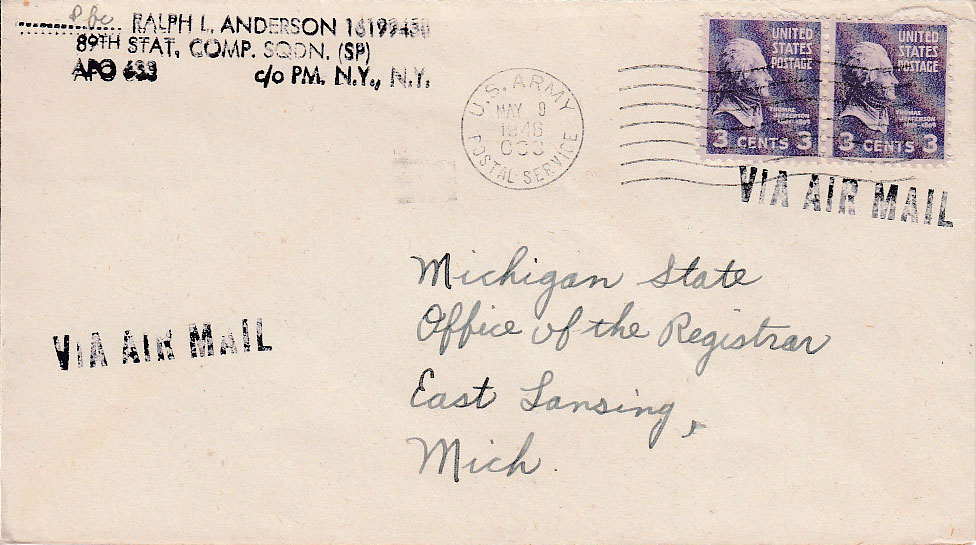 Pfc RALPH L. ANDERSON
89TH STAT. COMP. SQDN. (SP)
APO 633 c/o PM. N.Y., N.Y.
U.S. ARMY
MAY 9
1946
POSTAL SERVICE
UNITED
STATES
POSTAGE
THOMAS
JEFFERSON
3 CENTS 3
UNITED
STATES
POSTAGE
THOMAS
JEFFERSON
3 CENTS 3
VIA AIR MAIL
Michigan State
Office of the Registrar
East Lansing,
Mich.
VIA AIR MAIL